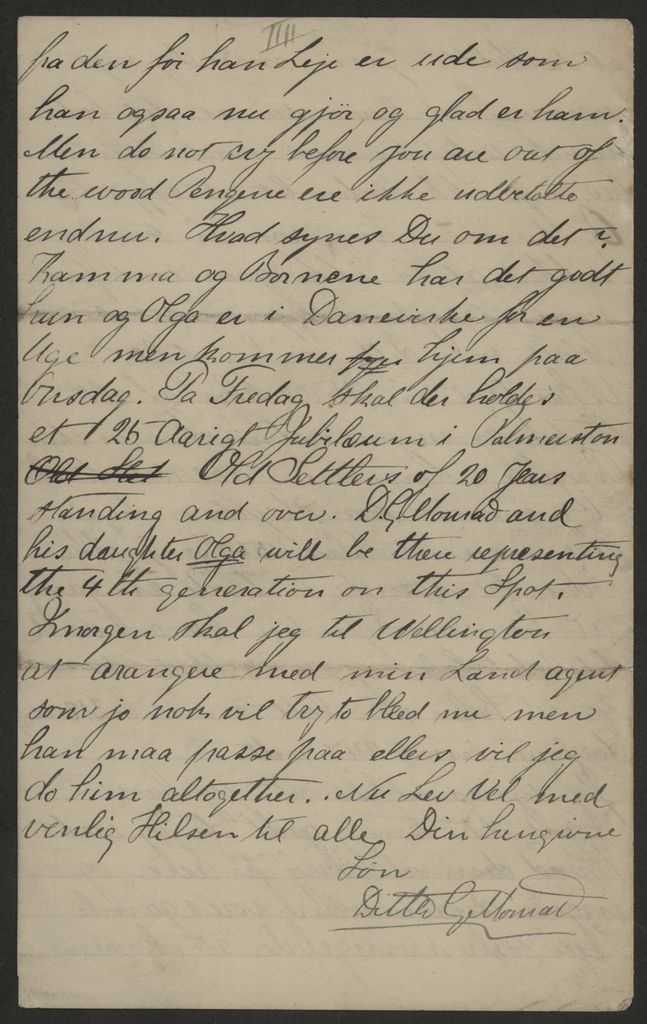 IIII
fra den för han Leje er ude som
han ogsaa nu gjör, og glad er ham.
Men do not cry before you are out of
the wood Pengene ere ikke udbetalte
endnu. Hvad synes Du om det?
Kamma og Börnene har det godt
hun og Olga er i Danevirke for en
Uge men kommer hjem paa
Onsdag. Pa Fredag skal der holdes
et 25 Aarigt Jubilæum i Palmerston
Old Settlers of 20 Years
standing and over. D.G. Monrad and
his daughter Olga will be there representing
the 4th generation on this Spot.
Imorgen skal jeg til Wellington
at arangere med min Land agent
som jo nok vil try to bleed me men
han maa passe paa ellers vil jeg
do him altogether. Nu Lev Vel med
venlig Hilsen til alle Din hengivne
Sön
Ditlev G Monrad